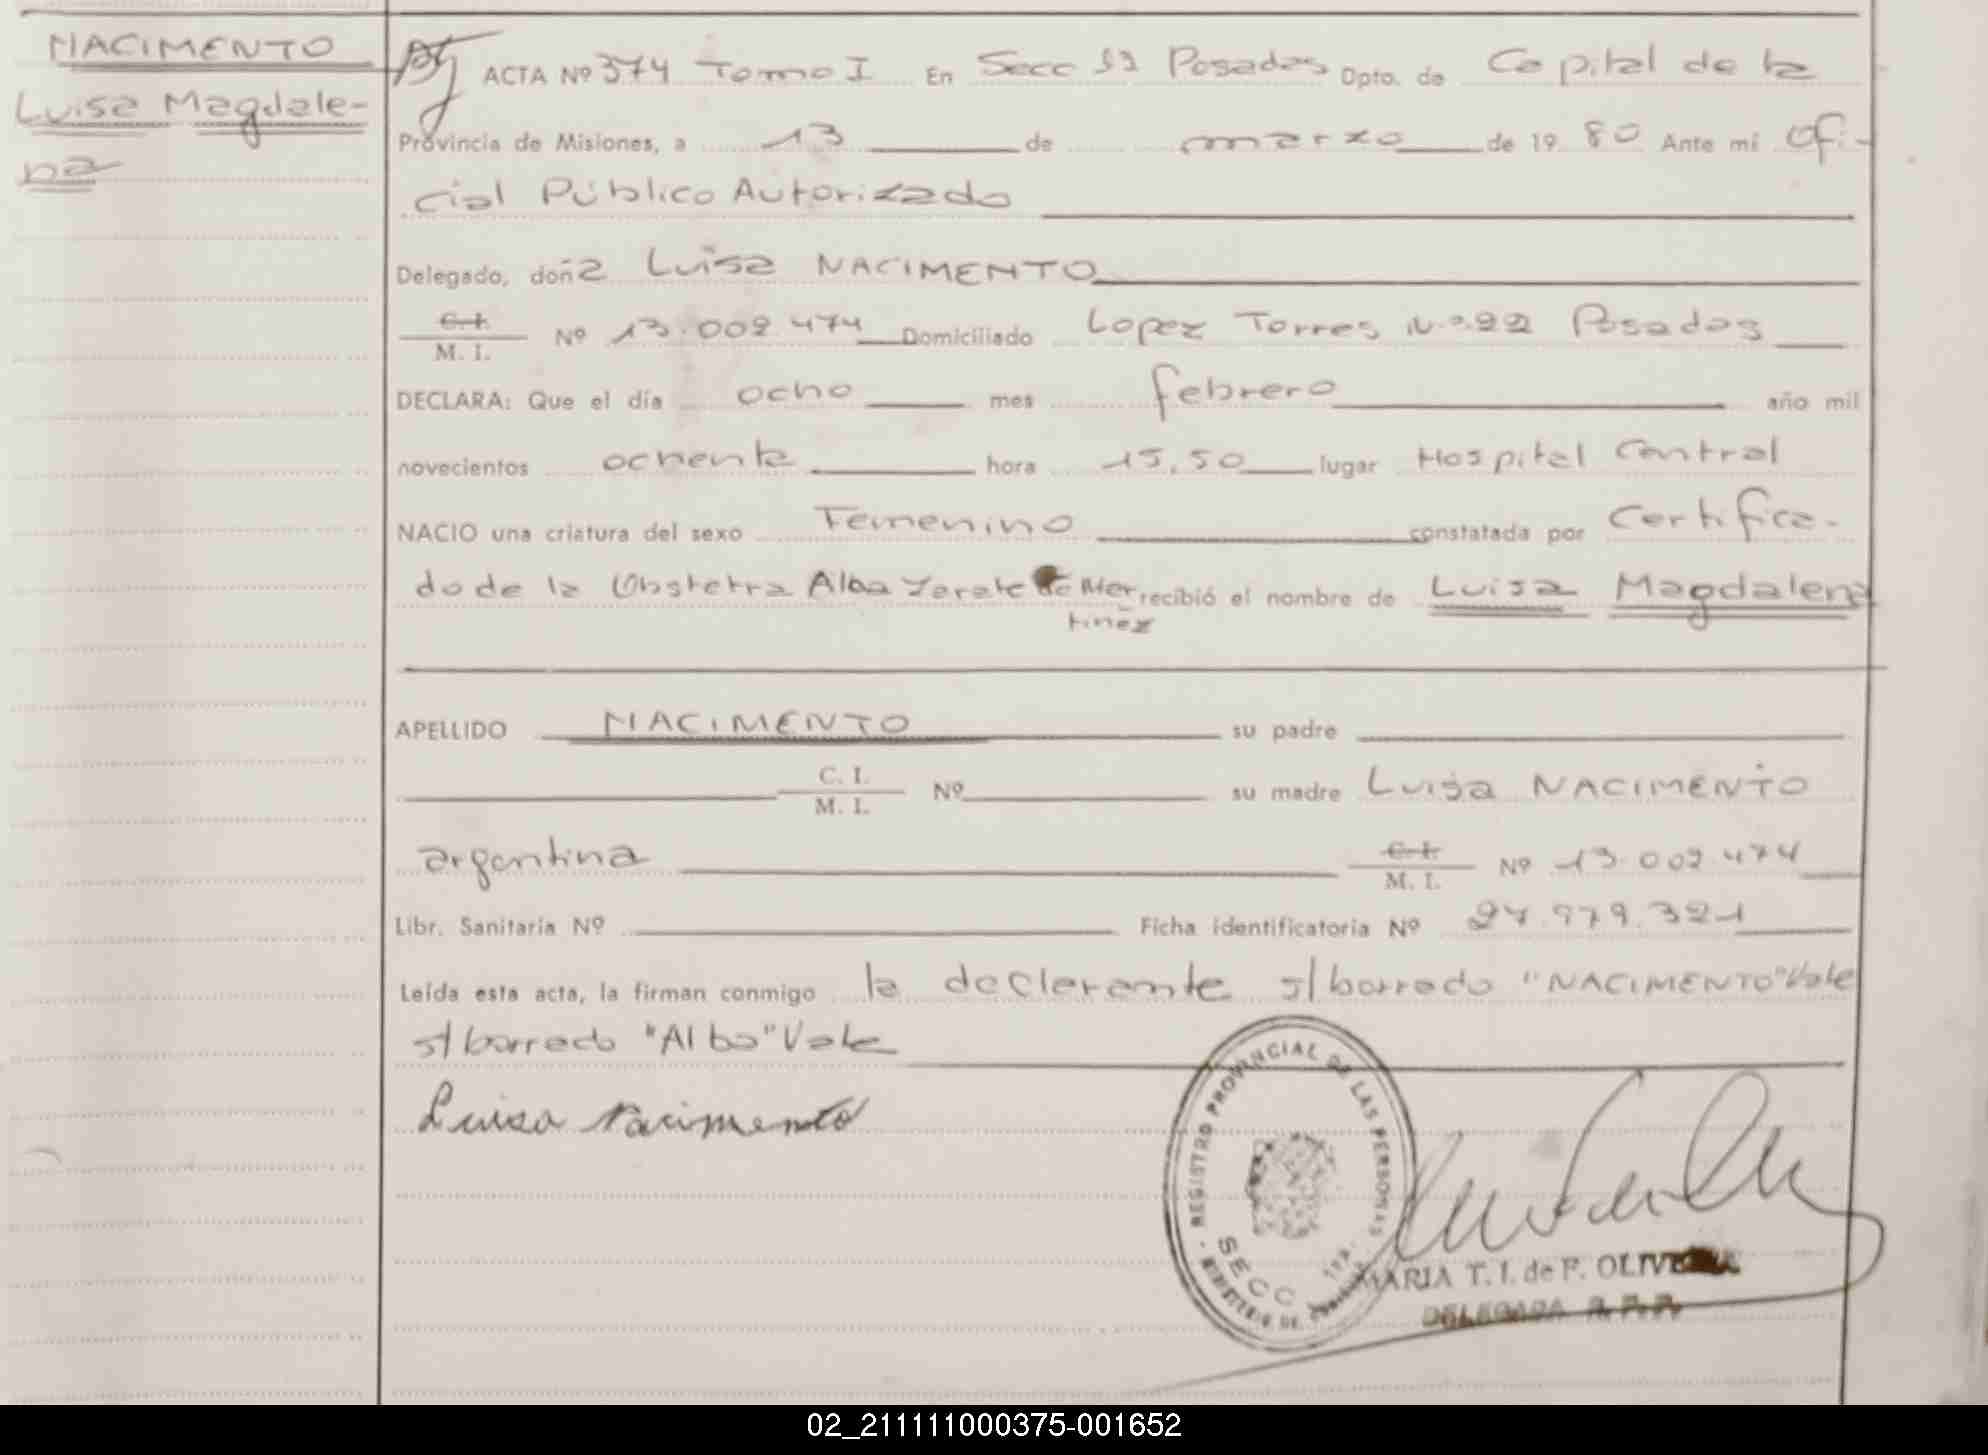 NACIMENTO
Luisa Magdale-
na
ACTA Nº 374 Tomo I En Secc 11 Posadas Dpto. de Capital de la
Provincia de Misiones, a 13 de marzo de 19 80 Ante mí Ofi-
cial Público Autorizado
Delegado, doña Luisa NACIMENTO
C. I.
M. I. Nº 13.002.474 Domiciliado Lopez Torres N.º 22 Posadas
DECLARA: Que el día ocho mes febrero año mil
novecientos ochenta hora 15,50 lugar Hospital Central
NACIO una criatura del sexo Femenino constatada por Certifica-
do de la Obstetra Alba Zarate de Mar recibió el nombre de Luisa Magdalena
tinez
APELLIDO NACIMENTO su padre
C. I.
M. I. Nº su madre Luisa NACIMENTO
argentina C. I.
M. I. Nº 13.002.474
Libr. Sanitaria Nº Ficha identificatoria Nº 27.979.321
Leída esta acta, la firman conmigo la declarante s/borrado "NACIMENTO" Vale
s/borrado "Alba" Vale
Luisa Nacimento
REGISTRO PROVINCIAL DE LAS PERSONAS
SECC
MARIA T. I. de F. OLIVEIRA
DELEGADA R.P.P.
02_211111000375-001652